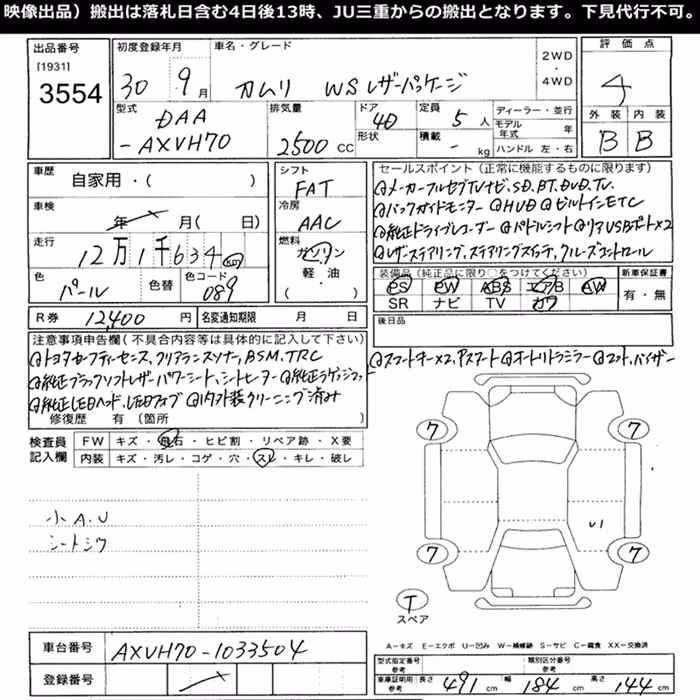 映像出品）搬出は落札日含む4日後13時、JU三重からの搬出となります。下見代行不可。
出品番号
[1931]
3554
初度登録年月
30 9月
車名・グレード
カムリ WSレザーパッケージ
2WD
・
4WD
評価点
4
型式
DAA
-AXVH70
排気量
2500 CC
ドア
4D
形状
定員
5 人
積載
- kg
ディーラー・並行
モデル年式 年
ハンドル 左・右
外装 内装
B B
車歴
自家用・( )
シフト
FAT
車検
年 月( 日)
冷房
AAC
走行
12万1千634 km
燃料
ガソリン
軽・油
( )
色
パール
色替
色コード
089
R券 12,400 円
名変通知期限 月 日
セールスポイント（正常に機能するものに限ります）
@メーカーフルセグTVナビ、SD、BT、DVD、TV、
@バックガイドモニター @HUD @ビルトインETC
@純正ドライブレコーダー @パドルシフト @リアUSBポート×2
@レザーステアリング、ステアリングスイッチ、クルーズコントロール
装備品（純正品に限り○をつけてください）
PS PW ABS エアB AW
SR ナビ TV カワ
新車保証書
有・無
後日品
@スマートキー×2、Pスタート @オートリトラミラー @マット、バイザー
注意事項申告欄（不具合内容等は具体的に記入して下さい）
@トヨタセーフティセンス、クリアランスソナー、BSM、TRC
@純正ブラックソフトレザーパワーシート、シートヒーター
@純正LEDヘッド、LEDフォグ @内外装クリーニング済み
修復歴 有（箇所
検査員
記入欄
FW キズ・飛石・ヒビ割・リペア跡・X要
内装 キズ・汚レ・コゲ・穴・スレ・キレ・破レ
小A.U
シートシワ
7 7
U1
7 7
T
スペア
A－キズ E－エクボ U－凹み W－補修跡 S－サビ C－腐食 XX－交換済
車台番号 AXVH70-1033504
登録番号
型式指定番号
参考
類別区分番号
参考
車庫証明用
参考
長さ 491 cm 幅 184 cm 高さ 144 cm